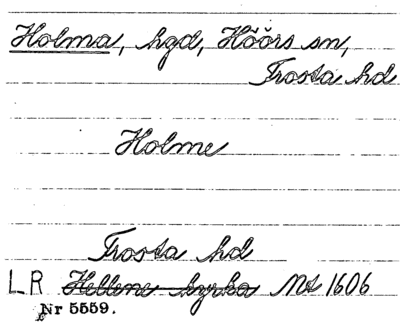 Holma, hgd, Höörs sn,
Frosta hd
Holme
Frosta hd
LR Hellene kyrka Mt 1606
Nr 5559.